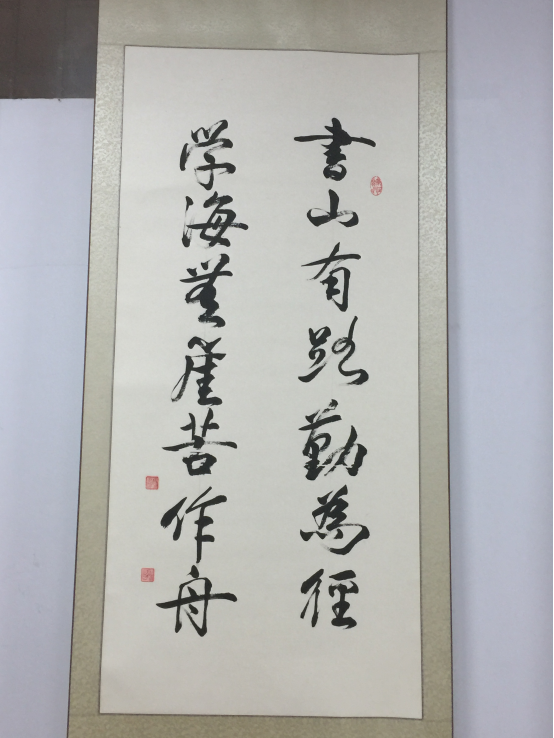 書山有路勤為徑
学海無崖苦作舟